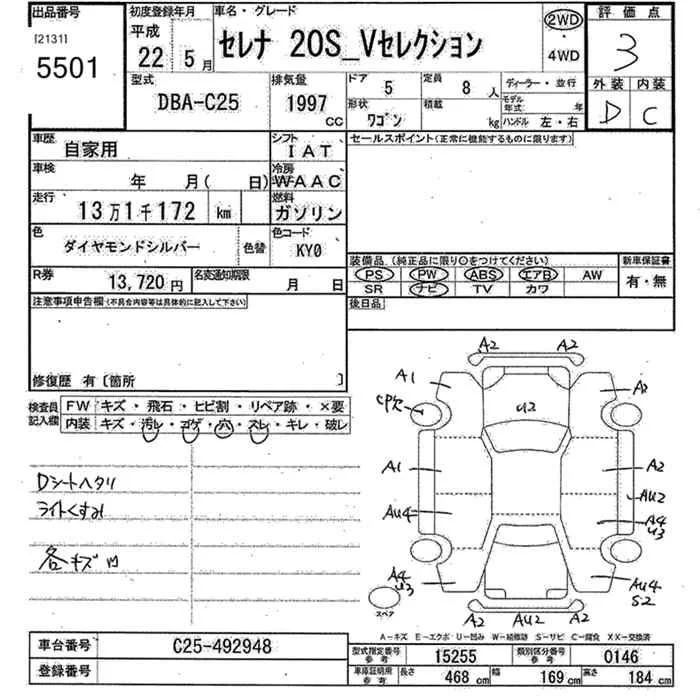 出品番号 初度登録年月 車名・グレード 2WD 評価点
[2131] 平成
5501 22 5月 セレナ 20S_Vセレクション ・ 3
4WD
型式 排気量 ドア 5 定員 8人 ディーラー・並行 外装 内装
DBA-C25 1997cc 形状 ワゴン 積載 kg モデル年式 年 D C
ハンドル 左・右
車歴 自家用 シフト IAT セールスポイント(正常に機能するものに限ります)
車検 年 月( 日) 冷房 WAAC
走行 13万1千172 km 燃料 ガソリン
色 ダイヤモンドシルバー 色替 色コード KY0
装備品(純正品に限り○をつけてください) 新車保証書
R券 13,720円 名変通知期限 月 日 PS PW ABS エアB AW 有・無
SR ナビ TV カワ
注意事項申告欄(不具合内容等は具体的に記入して下さい) 後日品
修復歴 有〔箇所 〕
検査員記入欄 FW キズ・飛石・ヒビ割・リペア跡・×要
内装 キズ・汚レ・コゲ・穴・スレ・キレ・破レ
Dシートヘタリ
ライトくすみ
各キズ凹
A2 A2
A1 A2
U2
A1 A2
AU2
AU4 A4
U3
A4 AU4
U3 S2
スペア A2 AU2 A2
A－キズ E－エクボ U－凹み W－補修跡 S－サビ C－腐食 XX－交換済
車台番号 C25-492948 型式指定番号 参考 15255 類別区分番号 参考 0146
登録番号 車庫証明用 参考 長さ 468 cm 幅 169 cm 高さ 184 cm